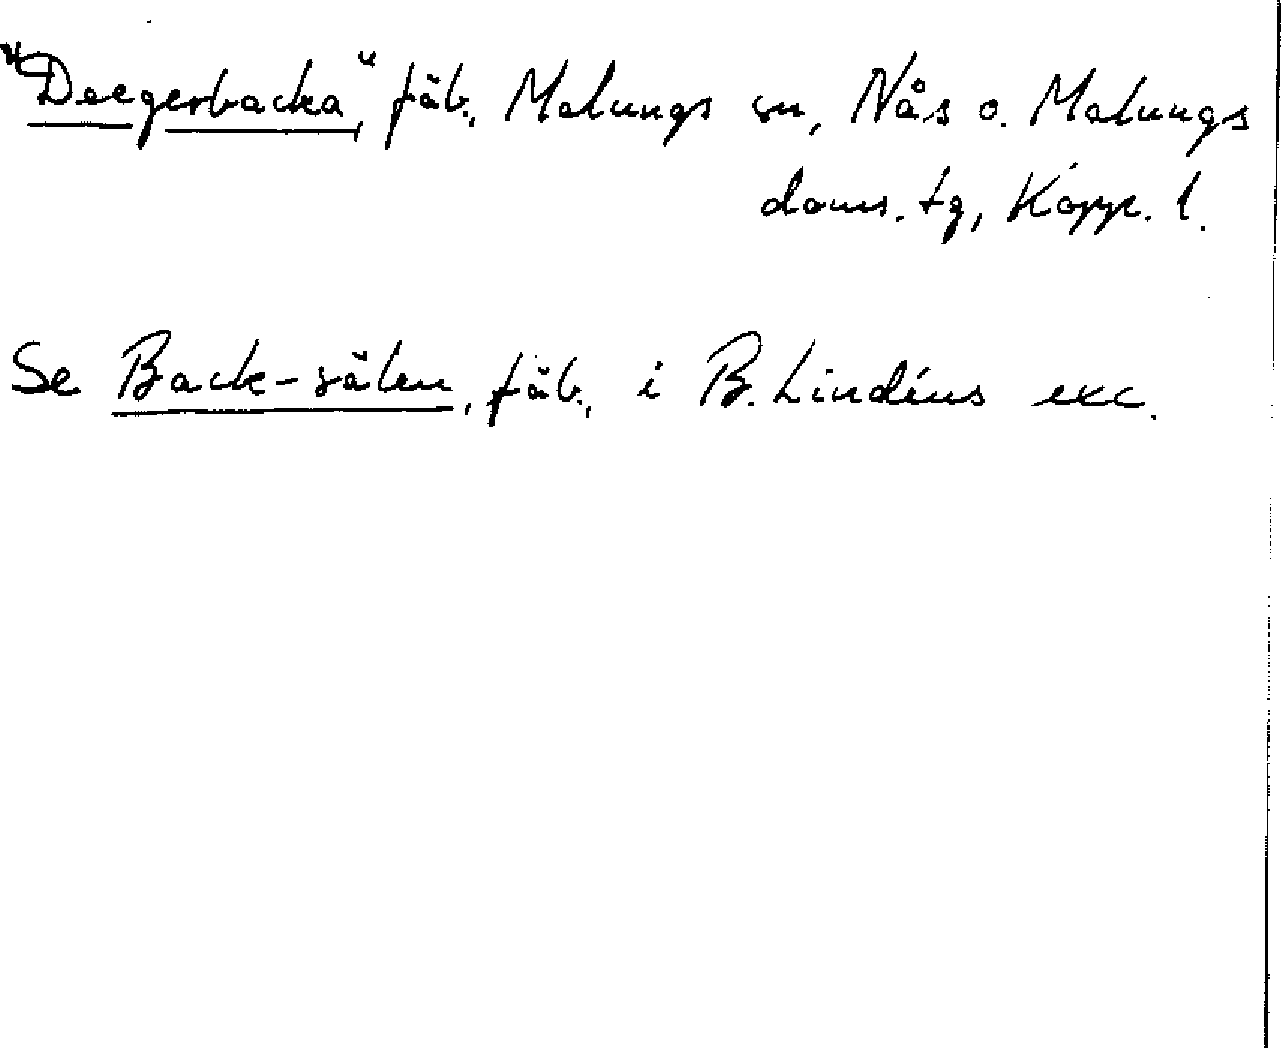 "Deegerbacka", fäb., Malungs sn, Nås o. Malungs
doms. tg, Kopp. l.
Se Back-sälen, fäb., i B. Lindéns exc.